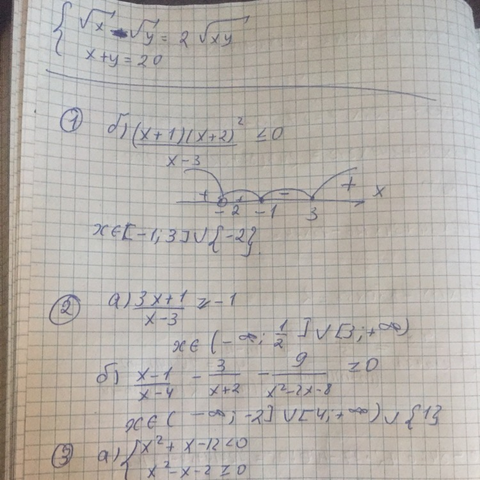 { √x - √y = 2 √xy
x + y = 20
① б) (x+1)(x+2)² / x-3 ≤ 0
+ -2 + -1 - 3 + x
x ∈ [-1; 3] ∪ {-2}
② а) 3x+1 / x-3 ≥ -1
x ∈ (-∞; 1/2] ∪ [3; +∞)
б) x-1 / x-4 - 3 / x+2 - 9 / x²-2x-8 ≥ 0
x ∈ (-∞; -2] ∪ [4; +∞) ∪ {1}
③ а) { x² + x - 12 < 0
x² - x - 2 ≥ 0